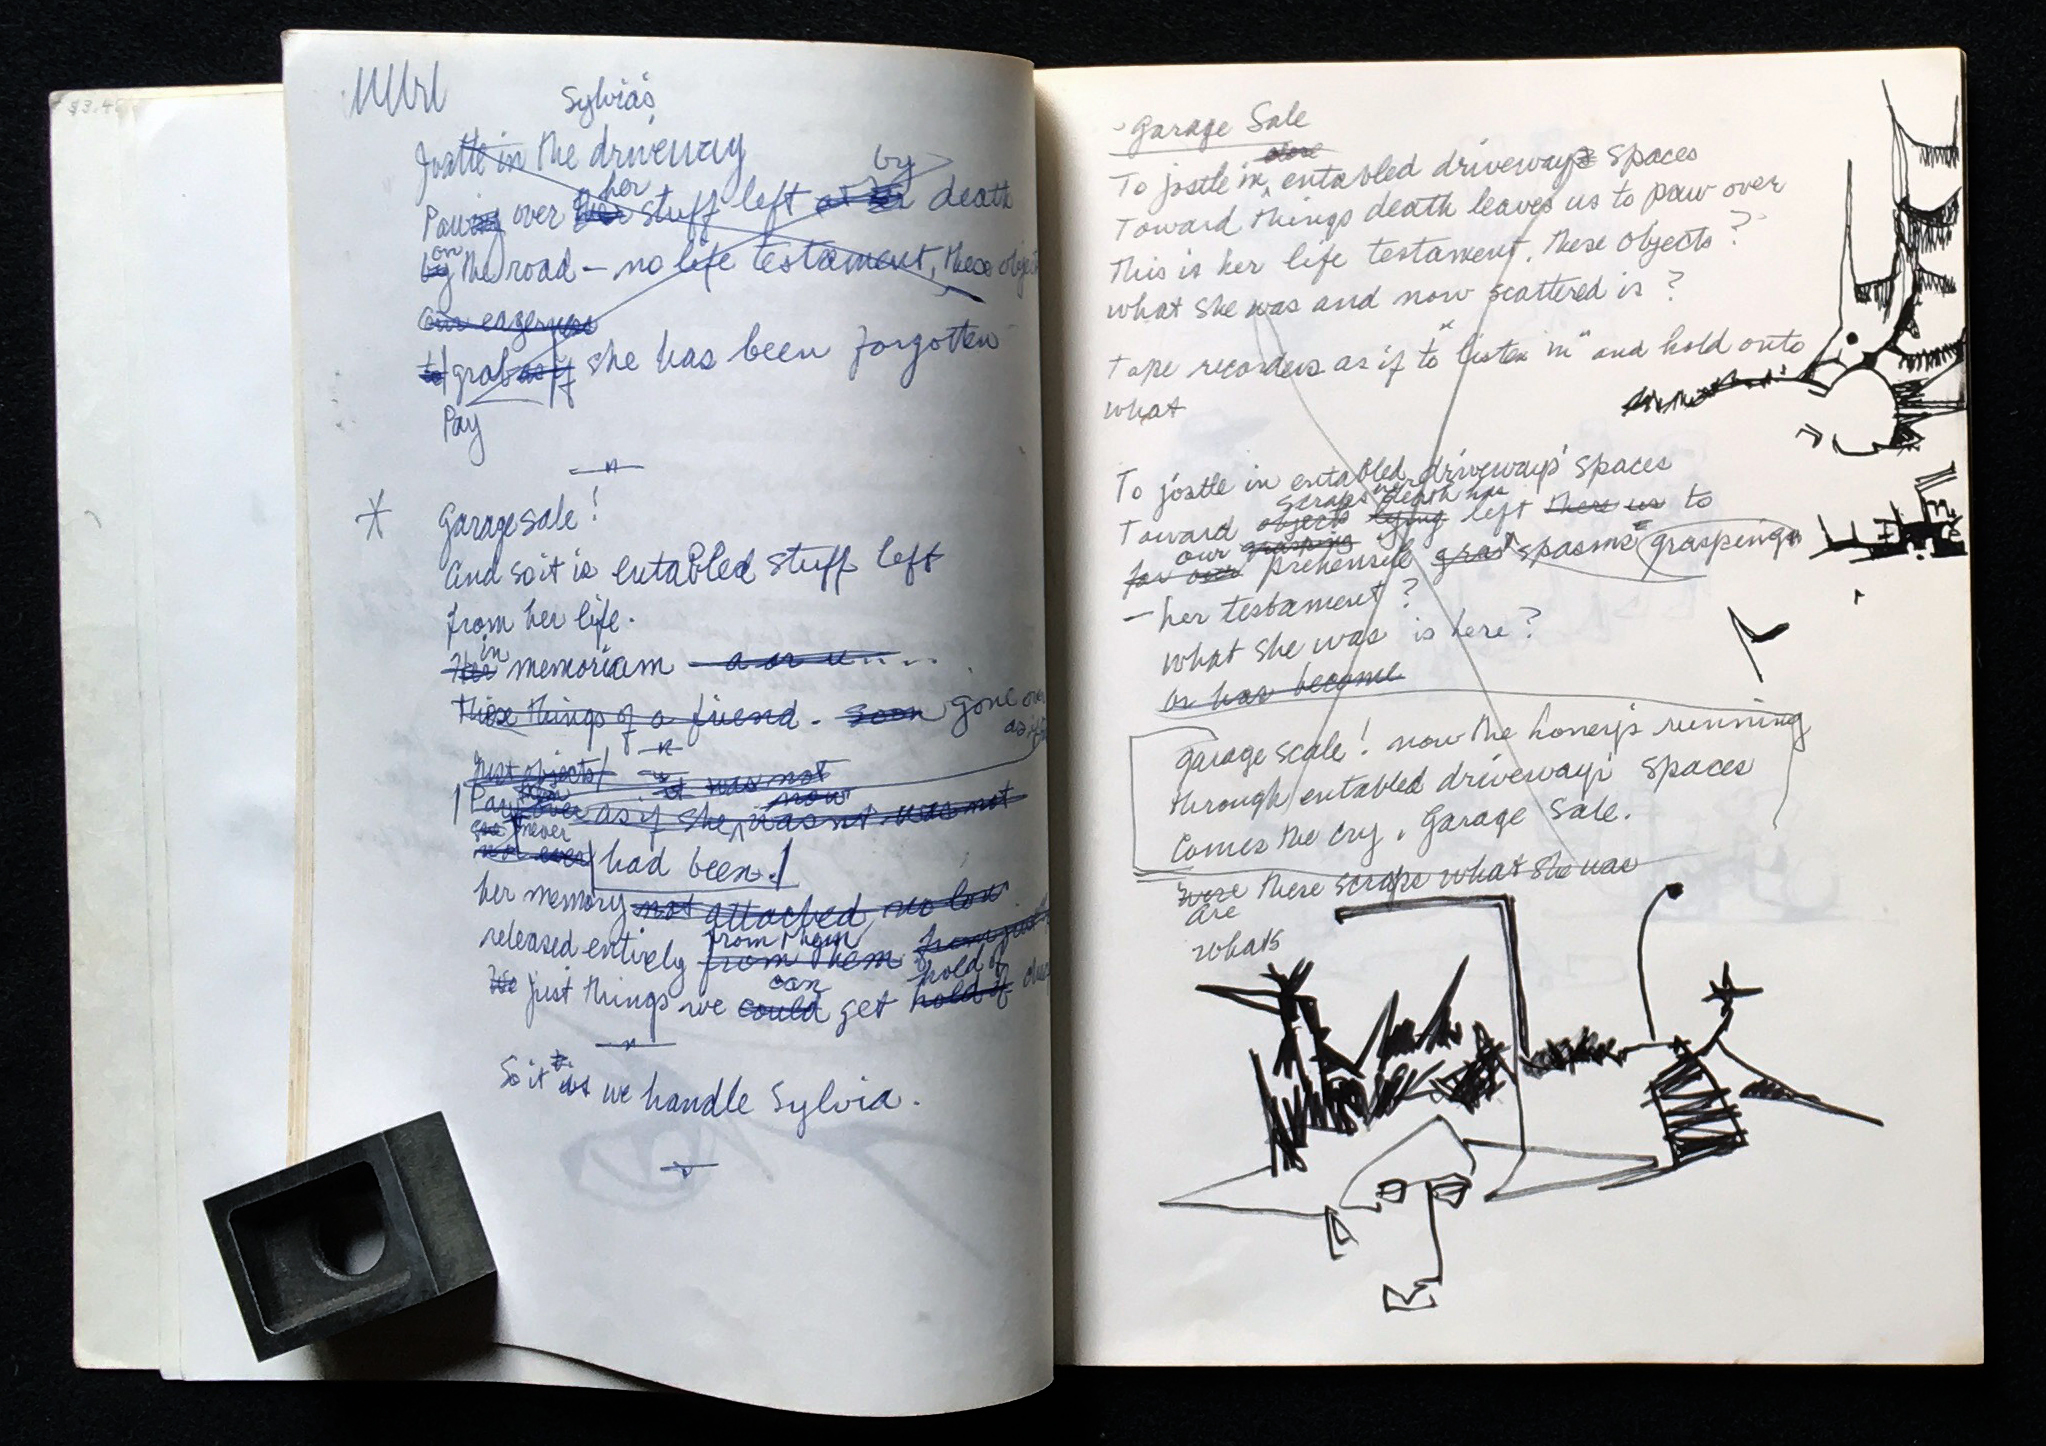 $3.4
Sylvia's
Jostle in the driveway
by
her
Pawing over her stuff left at death
on
by the road – no life testament, these objects
our eagerness
to grab as if she has been forgotten
Pay
* Garage sale!
And so it is entabled stuff left
from her life.
in
Her memoriam a or u....
these things of a friend. soon gone over
as if
Just objects/
it was not
now
Paw over as if she was not was not
never
not ever had been.
her memory not attached, no low
released entirely from them from just
from them hold of
can
just things we could get hold of
So it is we handle Sylvia.
Garage Sale
To jostle in entabled driveways spaces
Toward things death leaves us to paw over
This is her life testament, these objects?
what she was and now scattered is?
Tape recorders as if to "listen in" and hold onto
what
To jostle in entabled driveways' spaces
scraps death has
Toward objects lying left there us to
our grasping
for our prehensile gras spasms graspings
– her testament?
what she was is here?
or has become
garage scale! now the honey's running
through entabled driveways' spaces
Comes the cry, Garage Sale.
were these scraps what she was
are
whats